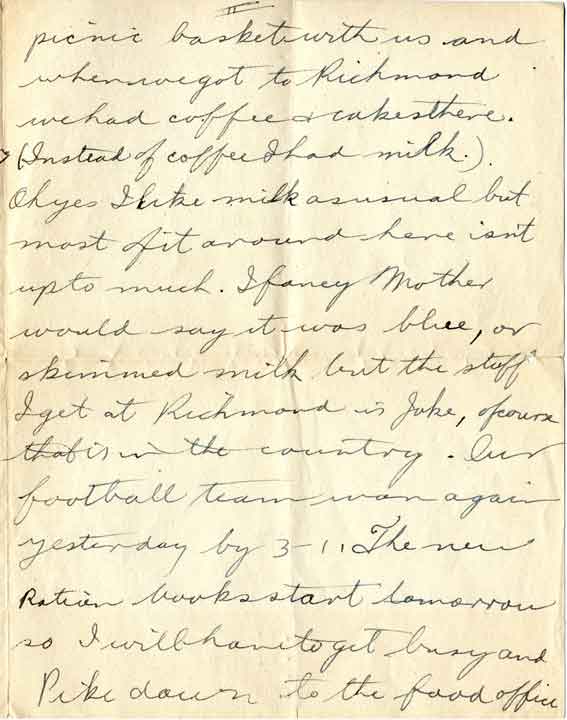 II
picnic basket with us and
when we got to Richmond
we had coffee & cakes there.
(Instead of coffee I had milk.)
Oh yes I like milk as usual but
most of it around here isn't
up to much. I fancy Mother
would say it was blue, or
skimmed milk but the stuff
I get at Richmond is Joke, of course
that is in the country. Our
football team won again
yesterday by 3-1. The new
Ration books start tomorrow
so I will have to get busy and
Pike down to the food office